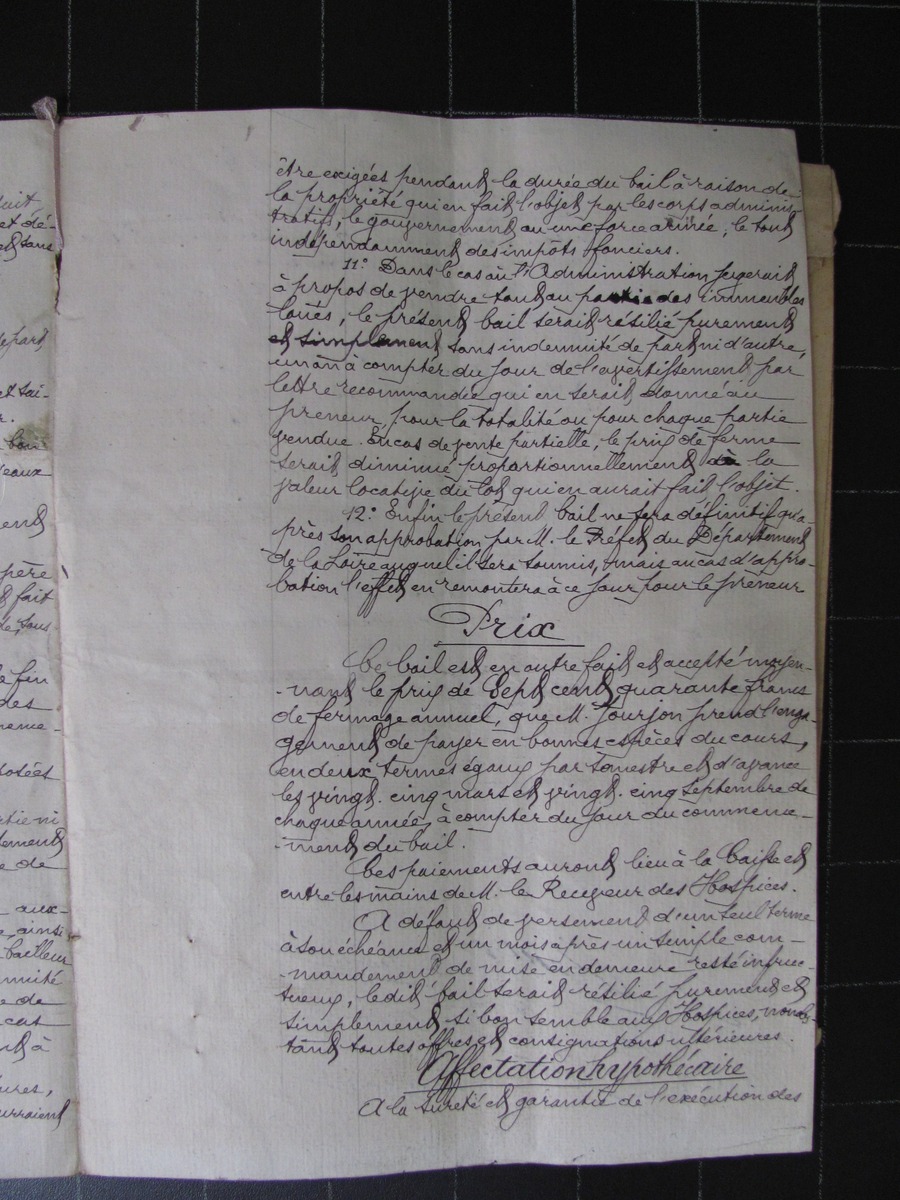 être exigées pendant la durée du bail à raison de
la propriété qui en fait l'objet par les corps adminis-
tratifs, le gouvernement ou une force armée, le tout
indépendamment des impôts fonciers.
11° Dans le cas où l'Administration jugerait
à propos de vendre tout ou partie des immeubles
loués, le présent bail serait résilié purement
et simplement sans indemnité de part ni d'autre,
un an à compter du jour de l'avertissement par
lettre recommandée qui en serait donné au
preneur, pour la totalité ou pour chaque partie
vendue. En cas de vente partielle, le prix de ferme
serait diminué proportionnellement à la
valeur locative du lot qui en aurait fait l'objet.
12° Enfin le présent bail ne sera définitif qu'a-
près son approbation par M. le Préfet du Département
de la Loire auquel il sera soumis, mais au cas d'appro-
bation l'effet en remontera à ce jour pour le preneur
Prix
Ce bail est en outre fait et accepté moyen-
-nant le prix de Sept cent quarante francs
de fermage annuel, que M. Jourjon prend l'enga-
gement de payer en bonnes espèces du cours,
en deux termes égaux par semestre et d'avance
les vingt-cinq mars et vingt-cinq septembre de
chaque année, à compter du jour du commence-
-ment du bail.
Ces paiements auront lieu à la Caisse et
entre les mains de M. le Receveur des Hospices.
A défaut de versement d'un seul terme
à son échéance et un mois après un simple com-
-mandement de mise en demeure resté infruc-
tueux, ledit bail serait résilié purement et
simplement si bon semble aux Hospices, nonobs-
tant toutes offres et consignations ultérieures.
Affectation hypothécaire
A la sureté et garantie de l'exécution des